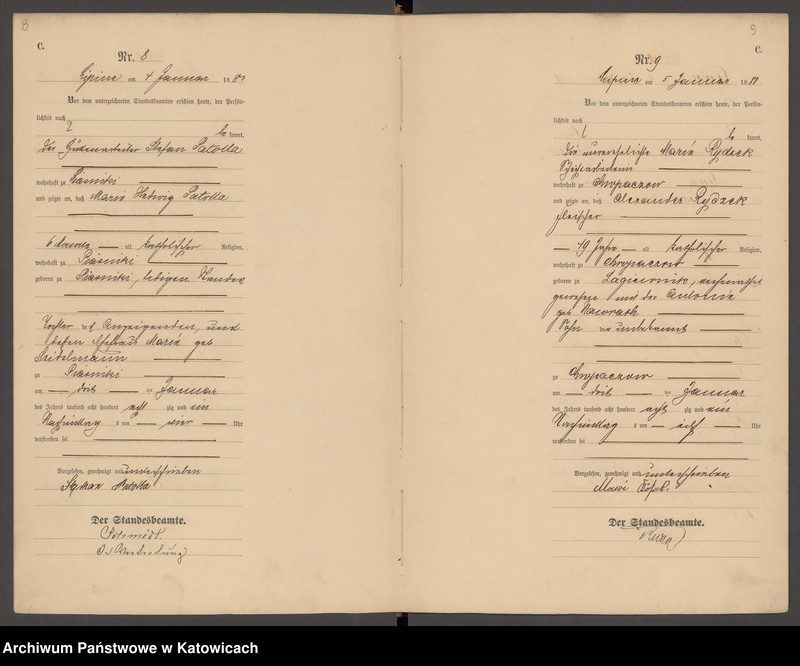 8
C.
Nr. 8
Lipine am 4 Januar 1881
Vor dem unterzeichneten Standesbeamten erschien heute, der Persön-
lichkeit nach
kannt,
Der Hüttenarbeiter Stefan Patolla
wohnhaft zu Piasniki
und zeigte an, daß Marie Hedwig Patolla
6 Stunde alt katholischer Religion,
wohnhaft zu Piasniki
geboren zu Piasniki, ledigen Standes
Tochter des Anzeigenden, und
dessen Ehefrau Marie geb
Seidelmann
zu Piasniki
am drit ten Januar
des Jahres tausend acht hundert acht zig und ein
Nachmittag s um vier Uhr
verstorben sei
Vorgelesen, genehmigt und unterschrieben
Stefan Patolla
Der Standesbeamte.
In Vertretung
9
C.
Nr. 9
Lipine am 5 Januar 1881
Vor dem unterzeichneten Standesbeamten erschien heute, der Persön-
lichkeit nach
kannt,
Die unverehelichte Marie Rydzek
wohnhaft zu Chropaczow
und zeigte an, daß Alexander Rydzek
Fleischer
49 Jahre alt katholischer Religion,
wohnhaft zu Chropaczow
geboren zu Lagiewnik, verheirathet
gewesen mit der Antonie
geb Nawrath
Sohn unbekannt
zu Chropaczow
am drit ten Januar
des Jahres tausend acht hundert acht zig und ein
Nachmittag s um acht Uhr
verstorben sei
Vorgelesen, genehmigt und unterschrieben
Der Standesbeamte.
Archiwum Państwowe w Katowicach